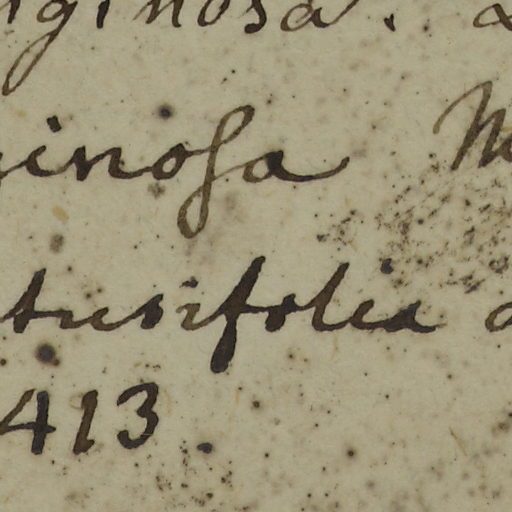 ginosa.
ginosa
tusifolia
413.